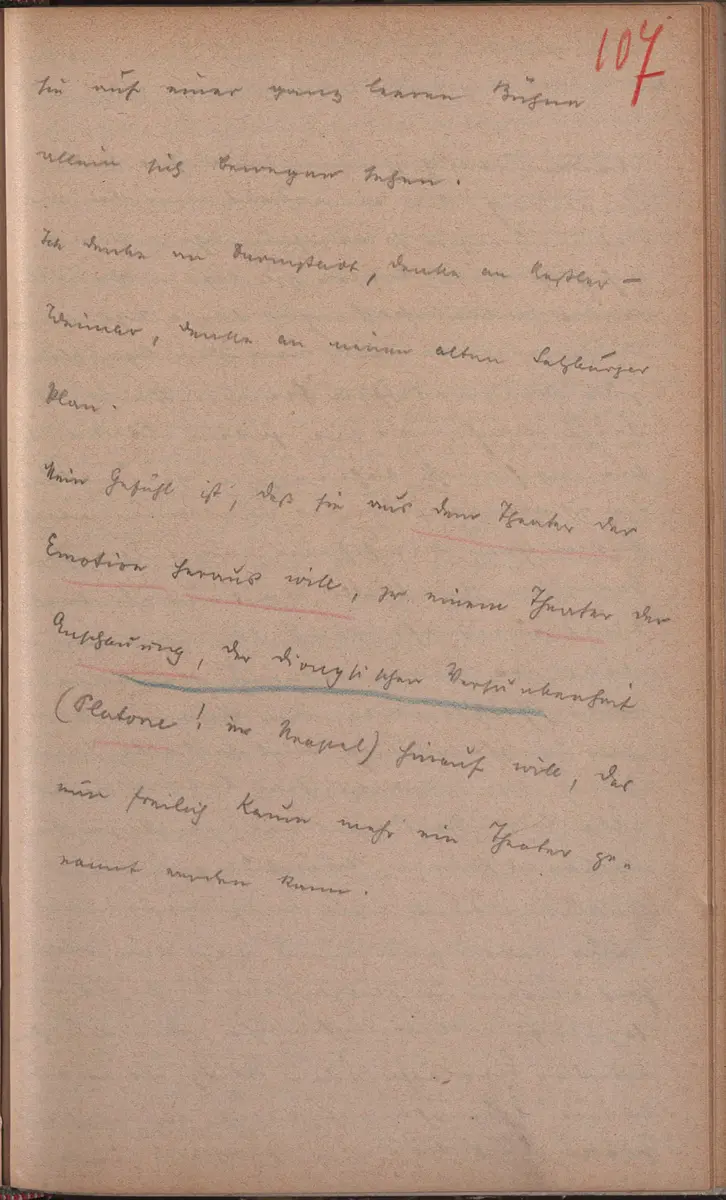 107
sie auf einer ganz leeren Bühne
allein sich bewegen sehen.
Ich denke an Darmstadt, denke an Keßler-
Weimar, denke an meinen alten Salzburger
Plan.
Mein Gefühl ist, daß sie aus dem Theater der
Emotion heraus will, zu einem Theater der
Anschauung, der dionysischen Versunkenheit
(Platone! in Neapel) hinauf will, das
nun freilich kaum mehr ein Theater ge-
nannt werden kann.